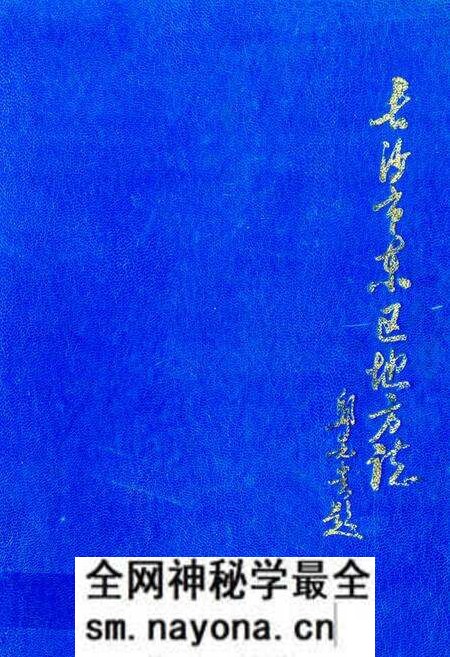 长沙市东区地方志
题
全网神秘学最全
sm.nayona.cn